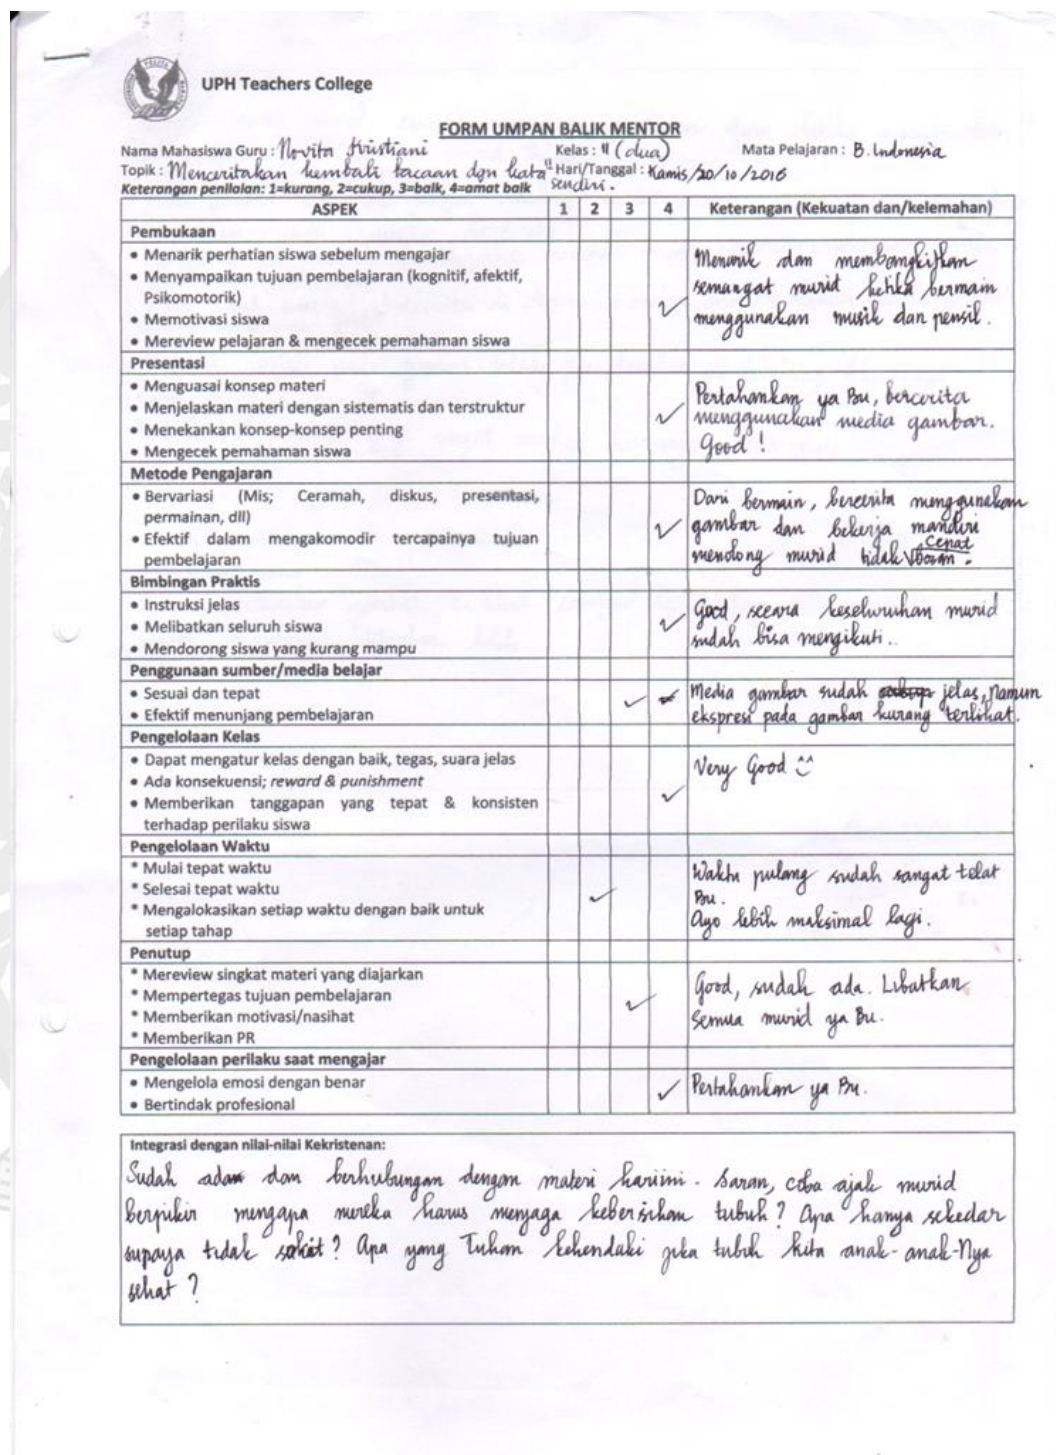 UPH Teachers College
FORM UMPAN BALIK MENTOR
Nama Mahasiswa Guru : Novita Kristiani Kelas : II (dua) Mata Pelajaran : B. Indonesia
Topik : Menceritakan kembali bacaan dgn kata" sendiri. Hari/Tanggal : Kamis/20/10/2016
Keterangan penilaian: 1=kurang, 2=cukup, 3=baik, 4=amat baik
ASPEK 1 2 3 4 Keterangan (Kekuatan dan/kelemahan)
Pembukaan
• Menarik perhatian siswa sebelum mengajar
• Menyampaikan tujuan pembelajaran (kognitif, afektif,
Psikomotorik)
• Memotivasi siswa
• Mereview pelajaran & mengecek pemahaman siswa
✓
Menarik dan membangkitkan
semangat murid ketika bermain
menggunakan musik dan pensil.
Presentasi
• Menguasai konsep materi
• Menjelaskan materi dengan sistematis dan terstruktur
• Menekankan konsep-konsep penting
• Mengecek pemahaman siswa
✓
Pertahankan ya Bu, bercerita
menggunakan media gambar.
Good !
Metode Pengajaran
• Bervariasi (Mis; Ceramah, diskus, presentasi,
permainan, dll)
• Efektif dalam mengakomodir tercapainya tujuan
pembelajaran
✓
Dari bermain, bercerita menggunakan
gambar dan bekerja mandiri
menolong murid tidak cepat bosan.
Bimbingan Praktis
• Instruksi jelas
• Melibatkan seluruh siswa
• Mendorong siswa yang kurang mampu
✓
Good, secara keseluruhan murid
sudah bisa mengikuti..
Penggunaan sumber/media belajar
• Sesuai dan tepat
• Efektif menunjang pembelajaran
✓
Media gambar sudah jelas, namun
ekspresi pada gambar kurang terlihat.
Pengelolaan Kelas
• Dapat mengatur kelas dengan baik, tegas, suara jelas
• Ada konsekuensi; reward & punishment
• Memberikan tanggapan yang tepat & konsisten
terhadap perilaku siswa
✓
Very Good
Pengelolaan Waktu
* Mulai tepat waktu
* Selesai tepat waktu
* Mengalokasikan setiap waktu dengan baik untuk
setiap tahap
✓
Waktu pulang sudah sangat telat
Bu.
Ayo lebih maksimal lagi.
Penutup
* Mereview singkat materi yang diajarkan
* Mempertegas tujuan pembelajaran
* Memberikan motivasi/nasihat
* Memberikan PR
✓
Good, sudah ada. Libatkan
semua murid ya Bu.
Pengelolaan perilaku saat mengajar
• Mengelola emosi dengan benar
• Bertindak profesional
✓
Pertahankan ya Bu.
Integrasi dengan nilai-nilai Kekristenan:
Sudah ada dan berhubungan dengan materi hariini. Saran, coba ajak murid
berpikir mengapa mereka harus menjaga kebersihan tubuh? Apa hanya sekedar
supaya tidak sakit? Apa yang Tuhan kehendaki jika tubuh kita anak-anak-Nya
sehat ?